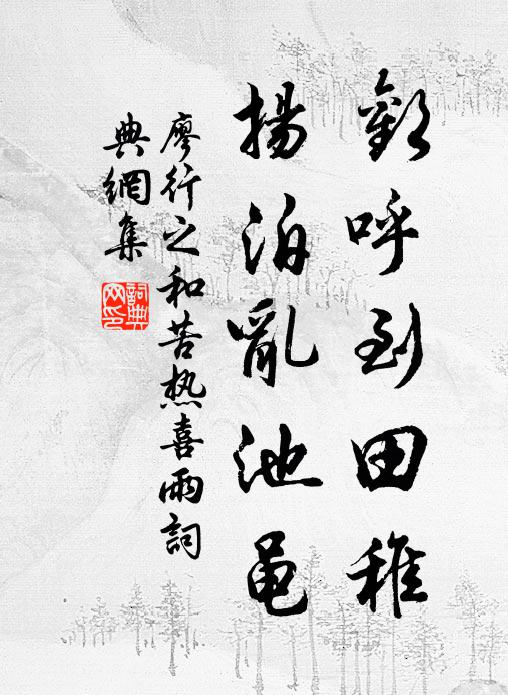 歡呼到田稚
揚汨亂池黽
廖行之和苦热喜雨詞
典網集
詞典网印